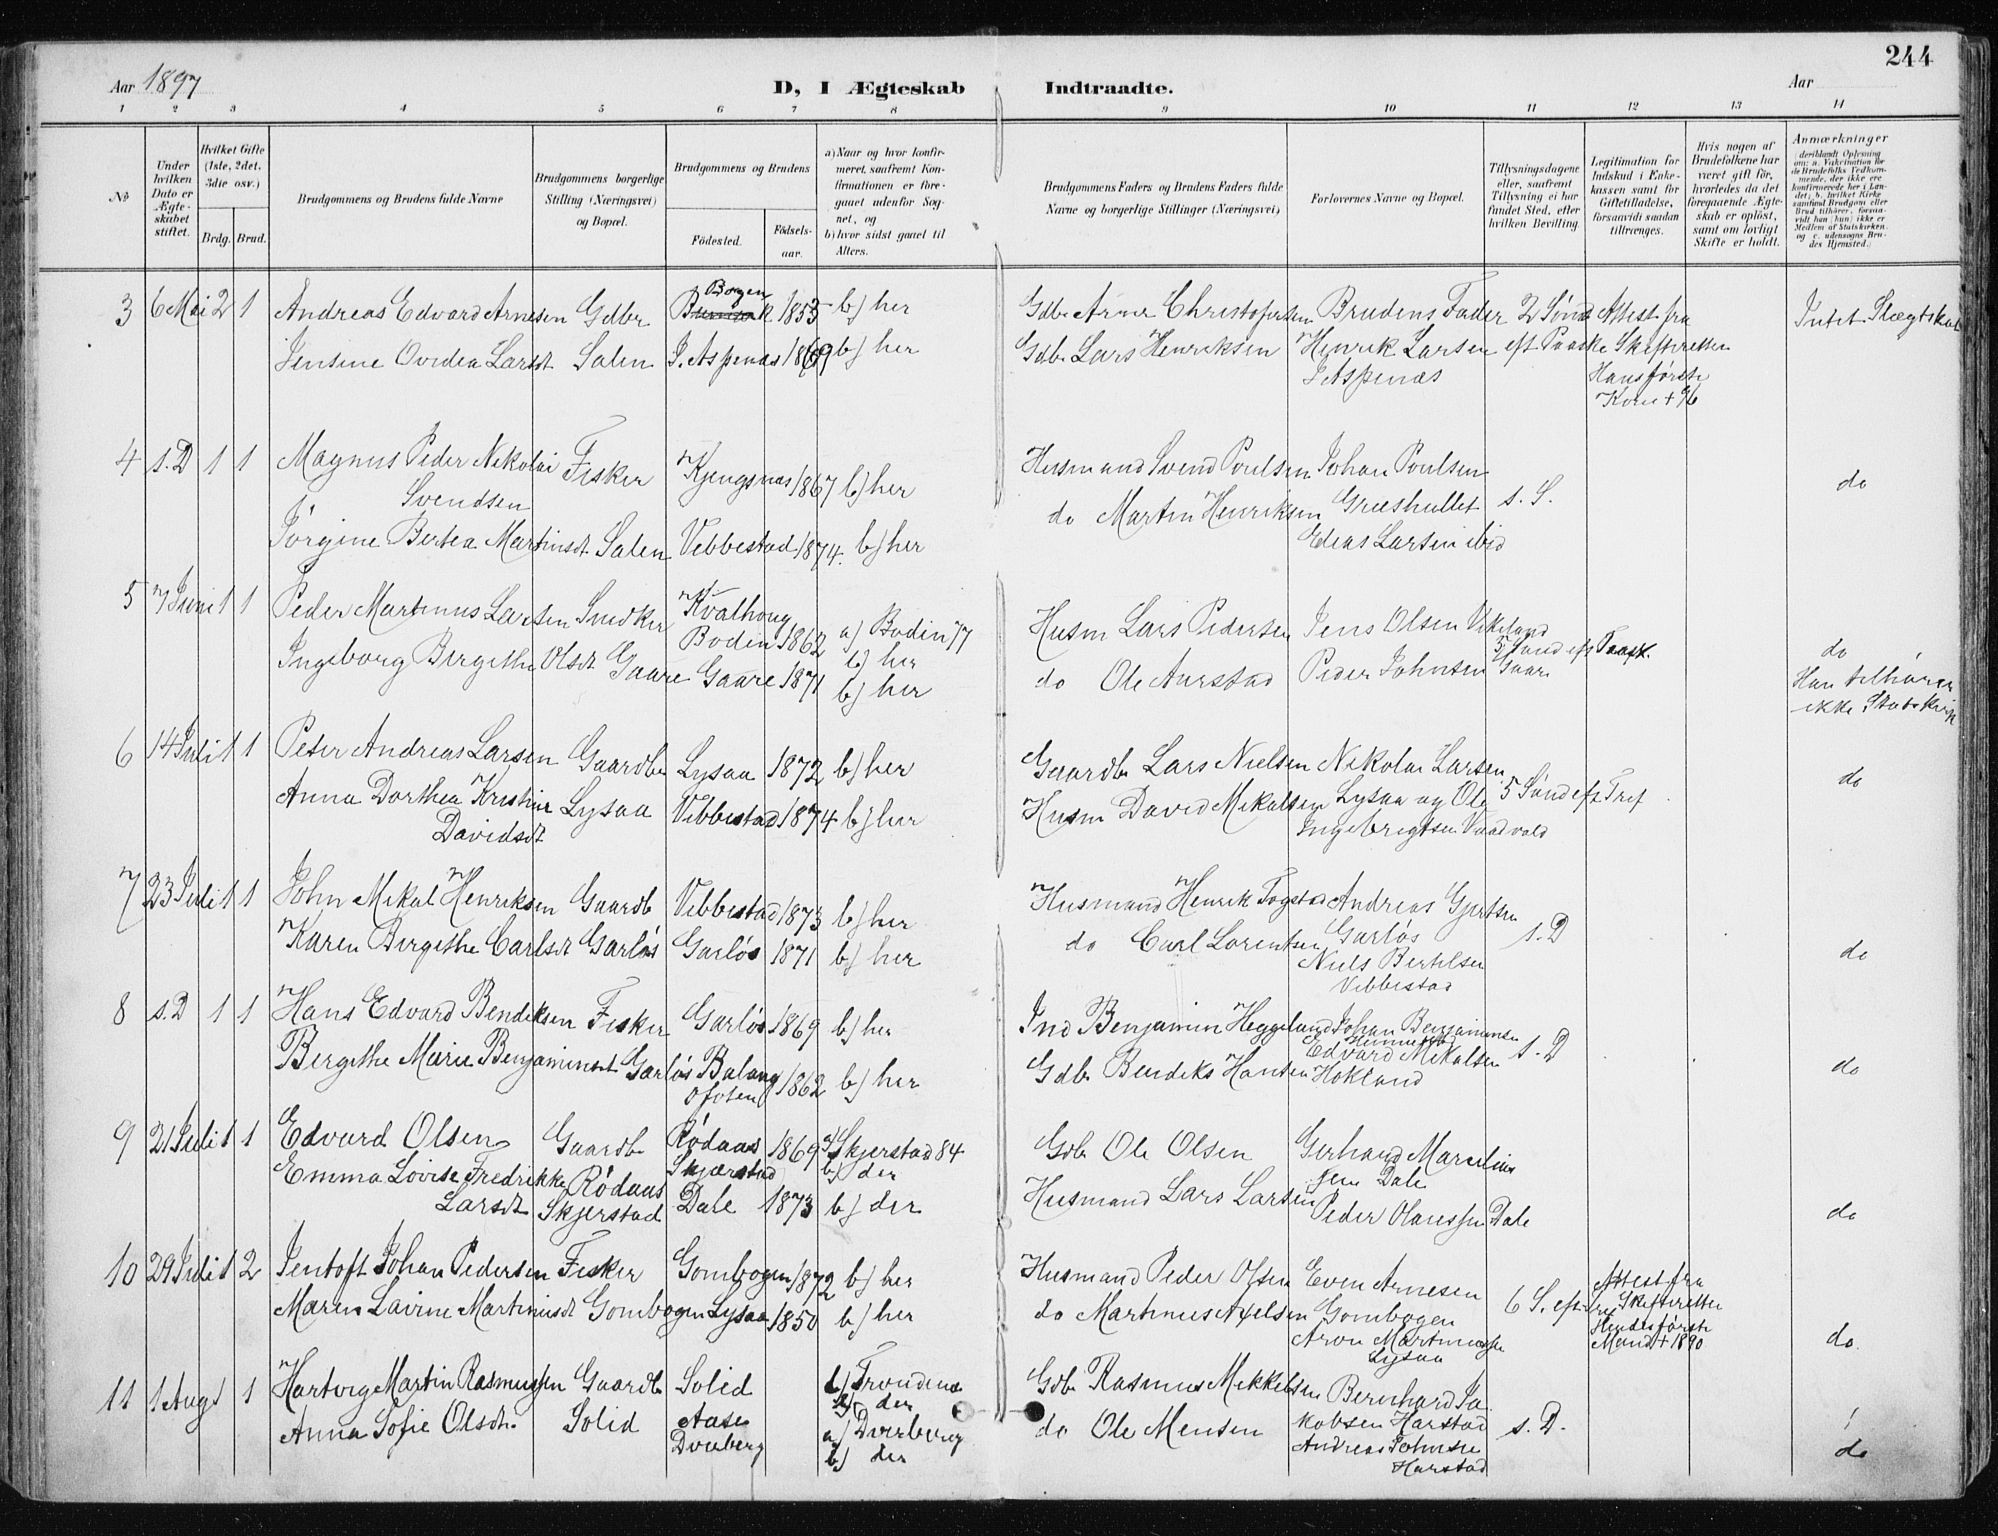 244
Aar 1897
D, I Ægteskab Indtraadte.
Aar
1 2 3 4 5 6 7 8 9 10 11 12 13 14
No
Under hvilken Dato er Ægteskabet stiftet.
Hvilket Gifte (1ste, 2det, 3die osv.)
Brdg. Brud.
Brudgommens og Brudens fulde Navne
Brudgommens borgerlige Stilling (Næringsvei) og Bopæl.
Brudgommens og Brudens
Fødested.
Fødselsaar.
a) Naar og hvor konfirmeret, saafremt Konfirmationen er foregaaet udenfor Sognet, og
b) hvor sidst gaaet til Alters.
Brudgommens Faders og Brudens Faders fulde Navne og borgerlige Stillinger (Næringsvei)
Forlovernes Navne og Bopæl.
Tillysningsdagene eller, saafremt Tillysning ei har fundet Sted, efter hvilken Bevilling.
Legitimation for Indskud i Enkekassen samt for Giftetilladelse, forsaavidt saadan tiltrænges.
Hvis nogen af Brudefolkene har været gift før, hvorledes da det foregaaende Ægteskab er opløst, samt om lovligt Skifte er holdt.
Anmærkninger (deriblandt Oplysning om: a. Vakcination for de Brudefolks Vedkommende, der ikke ere konfirmerede her i Landet; b. hvilket Kirkesamfund Brudgom eller Brud tilhører, forsaavidt han (hun) ikke er Medlem af Statskirken og c. udensogns Brudes Hjemsted.)
3 6 Mai 2 1 Andreas Edvard Arnesen Gdbr Borgen 1855 b) her Gdb. Arner Christofersen Brudens Fader 2 Sønd Attest fra Intet Slægtskab
Jensine Ovidea Larsdt Salen I. Aspenæs 1869 b) her Gdb. Lars Henriksen Henrik Larsen eft Paaske Skifteretten
I Aspenæs Hans første
Kone + 96
4 s. D 1 1 Magnus Peder Nikolai Fisker Kjengsnæs 1867 b) her Husmand Svend Poulsen Johan Poulsen do
Svendsen do Martin Henriksen Græshullet s. S.
Jørgine Bertea Martinsdt. Salen Vebbestad 1874. b) her Edeas Larsen ibid
5 7 Juni 1 1 Peder Martinus Larsen Snedker Kvalhoug
Bodin 1862 a) Bodin 77 Husm Lars Pedersen Jens Olsen Vikeland
b) her 5 Sønd eft Paask. do
Ingeborg Birgithe Olsdt Gaare Gaare 1871 b) her do Ole Aurstad Peder Johnsen Gaare
Han tilhører
ikke Statskirk
6 14 Juli 1 1 Peter Andreas Larsen Gaardb. Lysaa 1872 b) her Gaardb. Lars Nielsen Nikolai Larsen do
Anna Dorthea Kristine Lysaa Vebbestad 1874 b) her Husm David Mikalsen Lysaa og Ole 5 Sønd eft Tref
Davidsdt Ingebrigtsen Vaadvold
7 23 Juli 1 1 John Mikal Henriksen Gaardb Vebbestad 1873 b) her Husmand Henrik Fogstad Andreas Gjertsen
Karen Birgithe Carlsdt Garløs Garløs 1871 b) her do Carl Lorentsen Garløs s. D do
Niels Bertelsen
Vebbestad
8 s. D 1 1 Hans Edvard Bendiksen Fisker Garløs 1869 b) her Ind Benjamin Heggeland Johan Benjaminsen
Bergithe Marie Benjaminsdt Garløs Balang 1862 b) her Gdb. Bendiks Hansen Edvard Mikalsen s. D do
Ofoten Hokland
9 21 Juli 1 1 Edvard Olsen Gaardb Rødaas 1869 a) Skjerstad 84 Gdb. Ole Olsen Gerhard Marelius
Skjærstad b) der Jens Dale
Emma Lovise Fredrikke Rødaas
Larsdt Skjerstad Dale 1873 b) der Husmand Lars Larsen Peder Olaussen Dale do
10 29 Juli 1 2 Jentoft Johan Pedersen Fisker Gombogen 1872 b) her Husmand Peder Olsen Even Arnesen Attest fra
Maren Lavine Martinusdt Gombogen Lysaa 1850 b) her do Martinus Axelsen Gombogen 6 S. eft Skifteretten
Aron Martinussen Hendes første
Lysaa Mand + 1890 do
11 1 Aug 1 1 Hartvig Martin Rasmussen Gaardb Solid b) Trondenæs Gdb. Rasmus Mekkelsen Bernhard Ja
b) der kobsen Harstad
Anna Sofie Olsdt. Solid Aase a) Dverberg do Ole Mensen Andreas Johnsen s. D. do
Dverberg b) der Harstad